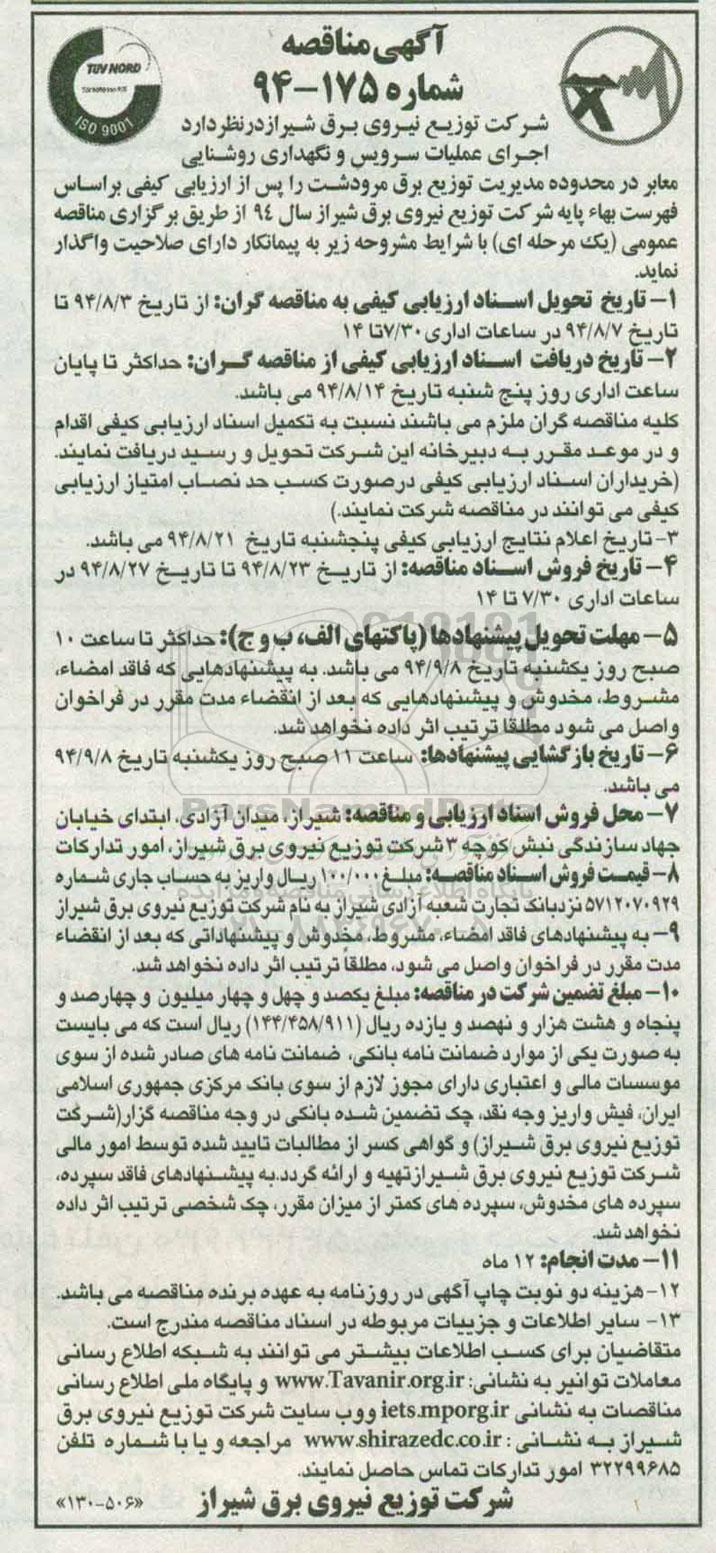 آگهی مناقصه
شماره ۱۷۵-۹۴
TUV NORD
ISO 9001
شرکت توزیع نیروی برق شیراز درنظر دارد
اجرای عملیات سرویس و نگهداری روشنایی
معابر در محدوده مدیریت توزیع برق مرودشت را پس از ارزیابی کیفی براساس
فهرست بهاء پایه شرکت توزیع نیروی برق شیراز سال ۹۴ از طریق برگزاری مناقصه
عمومی (یک مرحله ای) با شرایط مشروحه زیر به پیمانکار دارای صلاحیت واگذار
نماید.
۱- تاریخ تحویل اسناد ارزیابی کیفی به مناقصه گران: از تاریخ ۹۴/۸/۳ تا
تاریخ ۹۴/۸/۷ در ساعات اداری ۷/۳۰ تا ۱۴
۲- تاریخ دریافت اسناد ارزیابی کیفی از مناقصه گران: حداکثر تا پایان
ساعت اداری روز پنج شنبه تاریخ ۹۴/۸/۱۴ می باشد.
کلیه مناقصه گران ملزم می باشند نسبت به تکمیل اسناد ارزیابی کیفی اقدام
و در موعد مقرر به دبیرخانه این شرکت تحویل و رسید دریافت نمایند.
(خریداران اسناد ارزیابی کیفی درصورت کسب حد نصاب امتیاز ارزیابی
کیفی می توانند در مناقصه شرکت نمایند.)
۳- تاریخ اعلام نتایج ارزیابی کیفی پنجشنبه تاریخ ۹۴/۸/۲۱ می باشد.
۴- تاریخ فروش اسناد مناقصه: از تاریخ ۹۴/۸/۲۳ تا تاریخ ۹۴/۸/۲۷ در
ساعات اداری ۷/۳۰ تا ۱۴
۵- مهلت تحویل پیشنهادها (پاکتهای الف، ب و ج): حداکثر تا ساعت ۱۰
صبح روز یکشنبه تاریخ ۹۴/۹/۸ می باشد. به پیشنهادهایی که فاقد امضاء،
مشروط، مخدوش و پیشنهادهایی که بعد از انقضاء مدت مقرر در فراخوان
واصل می شود مطلقا ترتیب اثر داده نخواهد شد.
۶- تاریخ بازگشایی پیشنهادها: ساعت ۱۱ صبح روز یکشنبه تاریخ ۹۴/۹/۸
می باشد.
ParsNamadData
۷- محل فروش اسناد ارزیابی و مناقصه: شیراز، میدان آزادی، ابتدای خیابان
جهاد سازندگی نبش کوچه ۳ شرکت توزیع نیروی برق شیراز، امور تدارکات
۸- قیمت فروش اسناد مناقصه: مبلغ ۱۰۰/۰۰۰ ریال واریز به حساب جاری شماره
پایگاه اطلاع رسانی مناقصه و مزایده
۵۷۱۲۰۷۰۹۲۹ نزد بانک تجارت شعبه آزادی شیراز به نام شرکت توزیع نیروی برق شیراز
۹- به پیشنهادهای فاقد امضاء، مشروط، مخدوش و پیشنهاداتی که بعد از انقضاء
مدت مقرر در فراخوان واصل می شود، مطلقاً ترتیب اثر داده نخواهد شد.
۱۰- مبلغ تضمین شرکت در مناقصه: مبلغ یکصد و چهل و چهار میلیون و چهارصد و
پنجاه و هشت هزار و نهصد و یازده ریال (۱۴۴/۴۵۸/۹۱۱) ریال است که می بایست
به صورت یکی از موارد ضمانت نامه بانکی، ضمانت نامه های صادر شده از سوی
موسسات مالی و اعتباری دارای مجوز لازم از سوی بانک مرکزی جمهوری اسلامی
ایران، فیش واریز وجه نقد، چک تضمین شده بانکی در وجه مناقصه گزار(شرکت
توزیع نیروی برق شیراز) و گواهی کسر از مطالبات تایید شده توسط امور مالی
شرکت توزیع نیروی برق شیراز تهیه و ارائه گردد.به پیشنهادهای فاقد سپرده،
سپرده های مخدوش، سپرده های کمتر از میزان مقرر، چک شخصی ترتیب اثر داده
نخواهد شد.
۱۱- مدت انجام: ۱۲ ماه
۱۲- هزینه دو نوبت چاپ آگهی در روزنامه به عهده برنده مناقصه می باشد.
۱۳- سایر اطلاعات و جزییات مربوطه در اسناد مناقصه مندرج است.
متقاضیان برای کسب اطلاعات بیشتر می توانند به شبکه اطلاع رسانی
معاملات توانیر به نشانی: www.Tavanir.org.ir و پایگاه ملی اطلاع رسانی
مناقصات به نشانی iets.mporg.ir ووب سایت شرکت توزیع نیروی برق
شیراز به نشانی : www.shirazedc.co.ir مراجعه و یا با شماره تلفن
۳۲۲۹۹۶۸۵ امور تدارکات تماس حاصل نمایند.
شرکت توزیع نیروی برق شیراز «۵۰۶-۱۳۰»